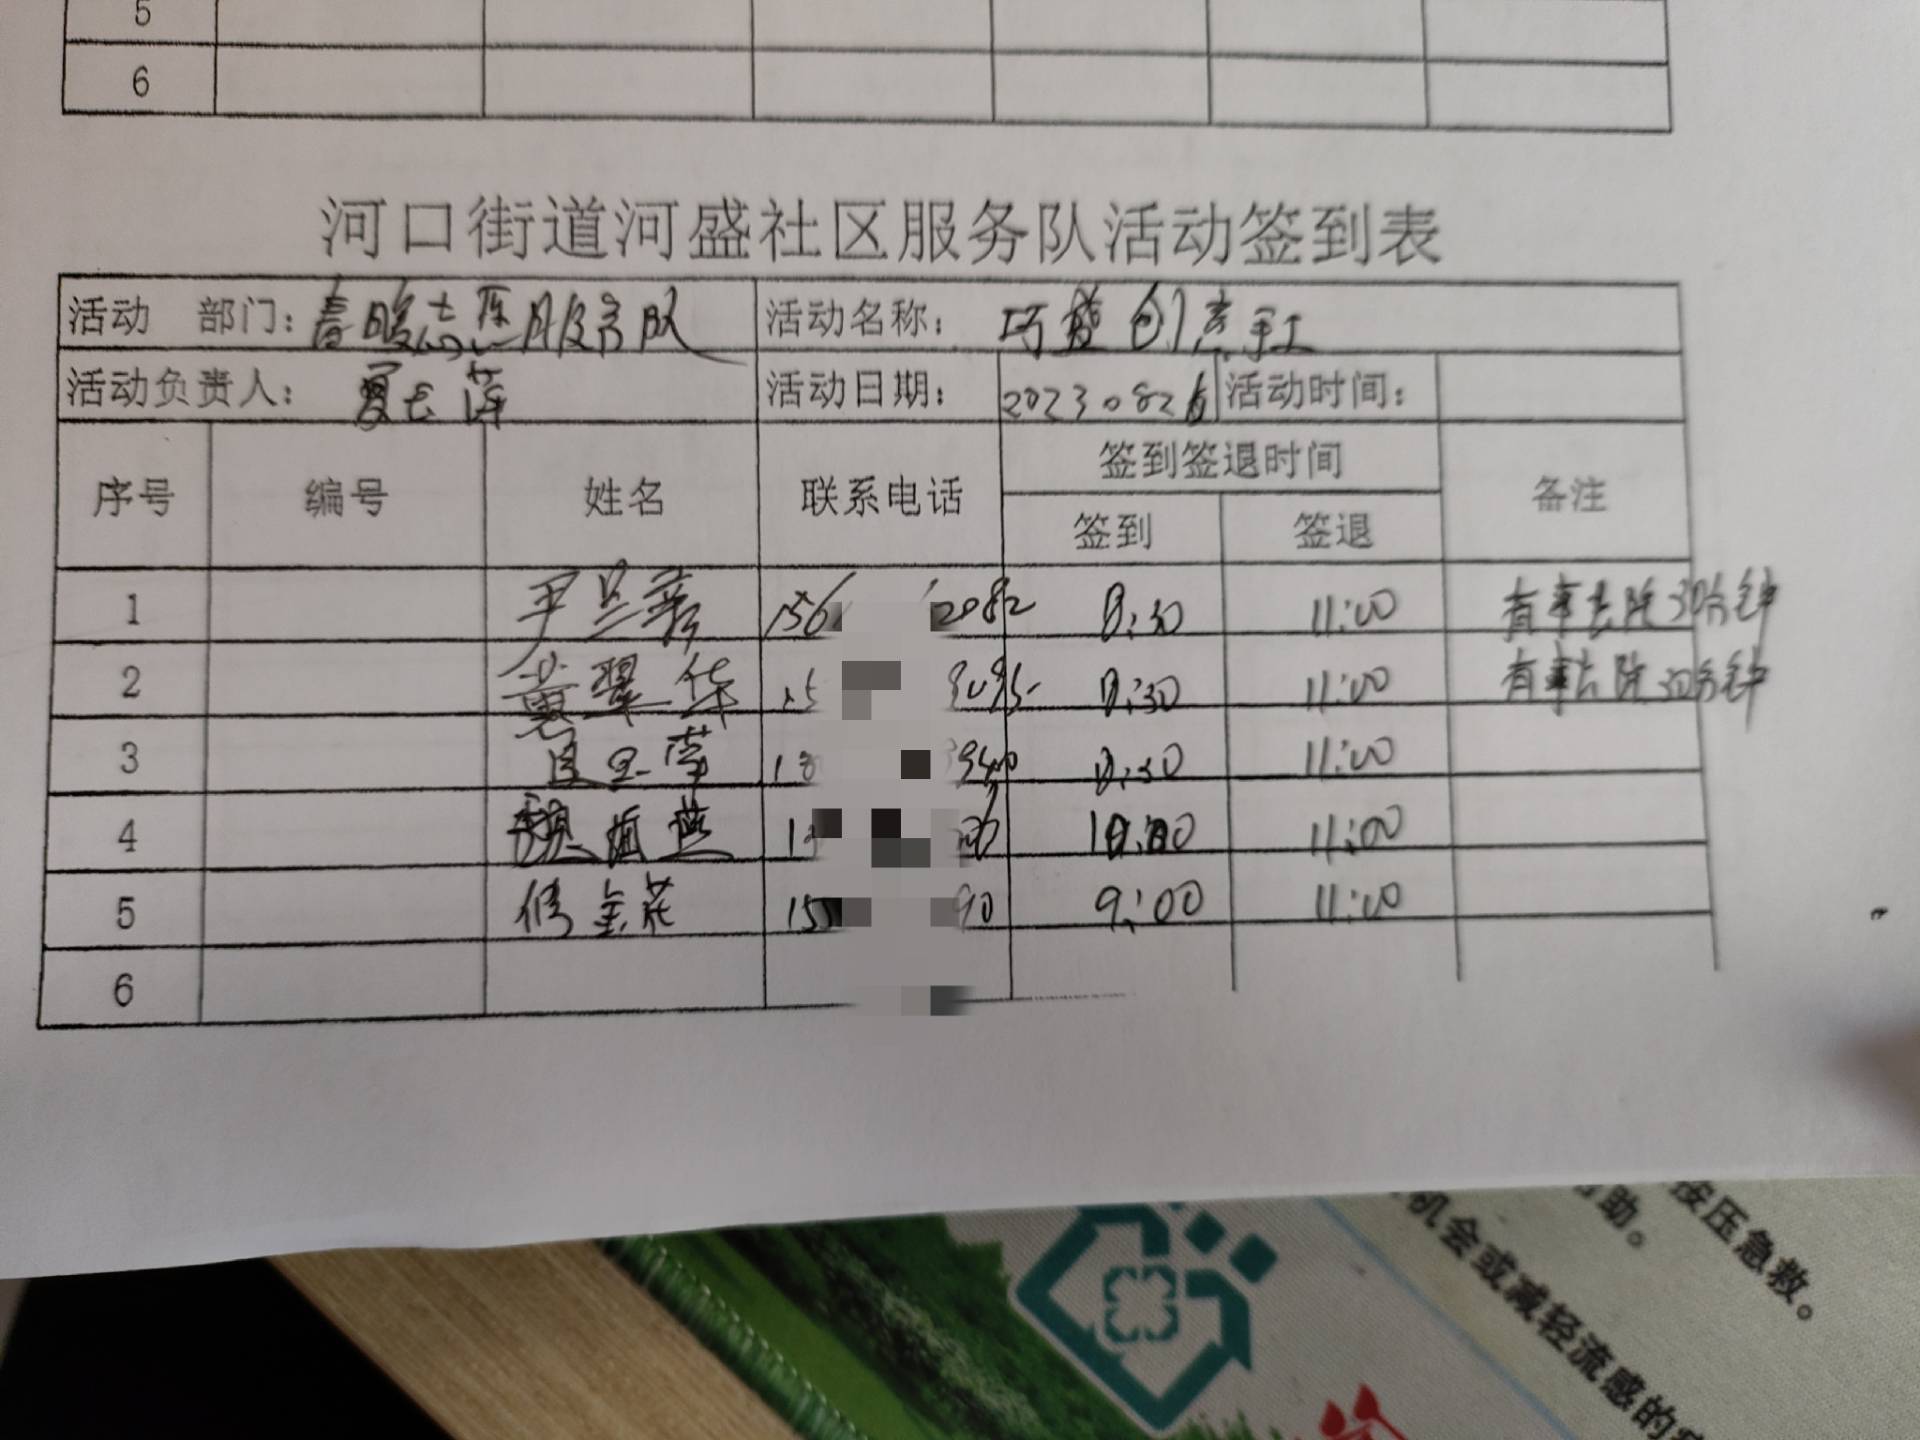 5
6
河口街道河盛社区服务队活动签到表
活动 部门：春暖志愿服务队 活动名称： 巧盛创意社
活动负责人： 夏 萍 活动日期： 202308 活动时间：
序号 编号 姓名 联系电话 签到签退时间 备注
签到 签退
1 尹兰 156 2082 8:30 11:00 有事去除30分钟
2 冀翠华 15 9095 8:30 11:00 有事去除30分钟
3 18 3940 8:30 11:00
4 1 10:00 11:00
5 修金花 155 90 9:00 11:00
6
按压急救。
助。
机会或减轻流感的